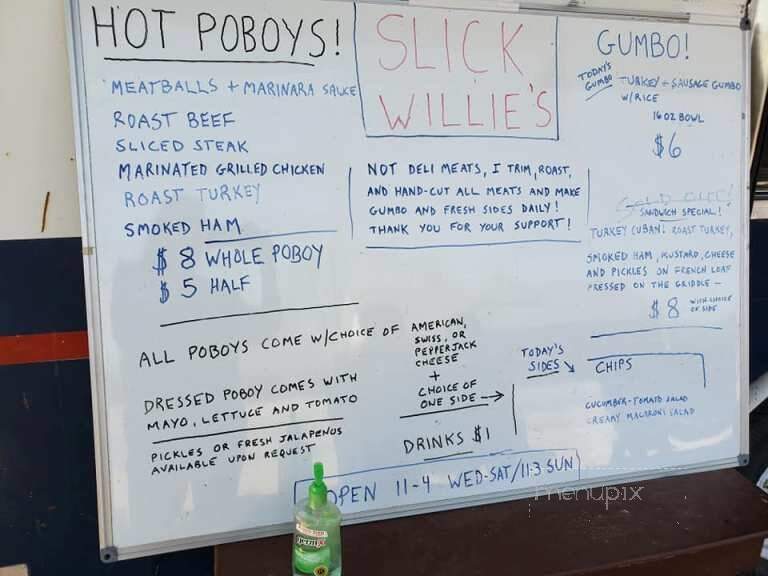 HOT POBOYS!
MEATBALLS + MARINARA SAUCE
ROAST BEEF
SLICED STEAK
MARINATED GRILLED CHICKEN
ROAST TURKEY
SMOKED HAM
$8 WHOLE POBOY
$5 HALF
SLICK
WILLIE'S
NOT DELI MEATS, I TRIM, ROAST,
AND HAND-CUT ALL MEATS AND MAKE
GUMBO AND FRESH SIDES DAILY!
THANK YOU FOR YOUR SUPPORT!
GUMBO!
TODAY'S
GUMBO
TURKEY + SAUSAGE GUMBO
W/RICE
16 OZ BOWL
$6
SOLD OUT!
SANDWICH SPECIAL!
TURKEY CUBAN: ROAST TURKEY,
SMOKED HAM, MUSTARD, CHEESE
AND PICKLES ON FRENCH LOAF
PRESSED ON THE GRIDDLE -
$8 WITH CHOICE
OF SIDE
ALL POBOYS COME W/CHOICE OF
AMERICAN,
SWISS, OR
PEPPERJACK
CHEESE
+
CHOICE OF
ONE SIDE →
DRESSED POBOY COMES WITH
MAYO, LETTUCE AND TOMATO
PICKLES OR FRESH JALAPENOS
AVAILABLE UPON REQUEST
DRINKS $1
TODAY'S
SIDES
CHIPS
CUCUMBER-TOMATO SALAD
CREAMY MACARONI SALAD
OPEN 11-4 WED-SAT/11-3 SUN
menupix
germ-x